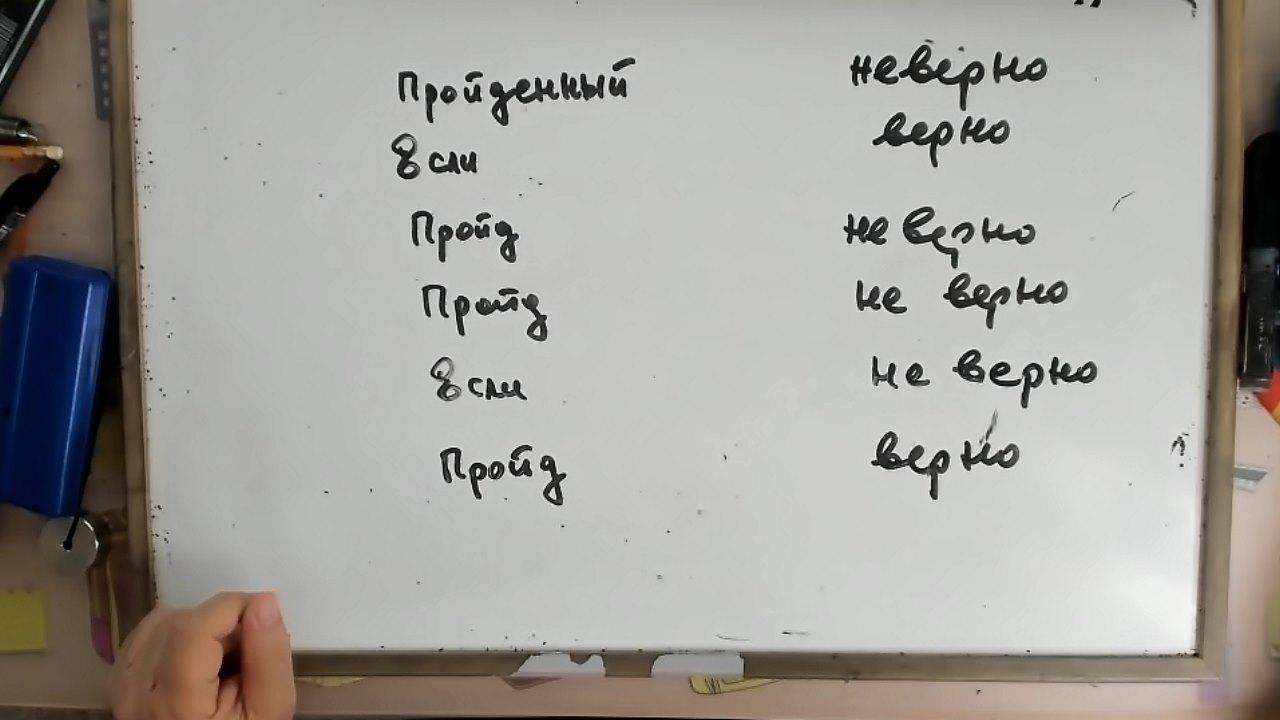 Пройденный неверно
Если верно
Пройд не верно
Пройд не верно
Если не верно
Пройд верно